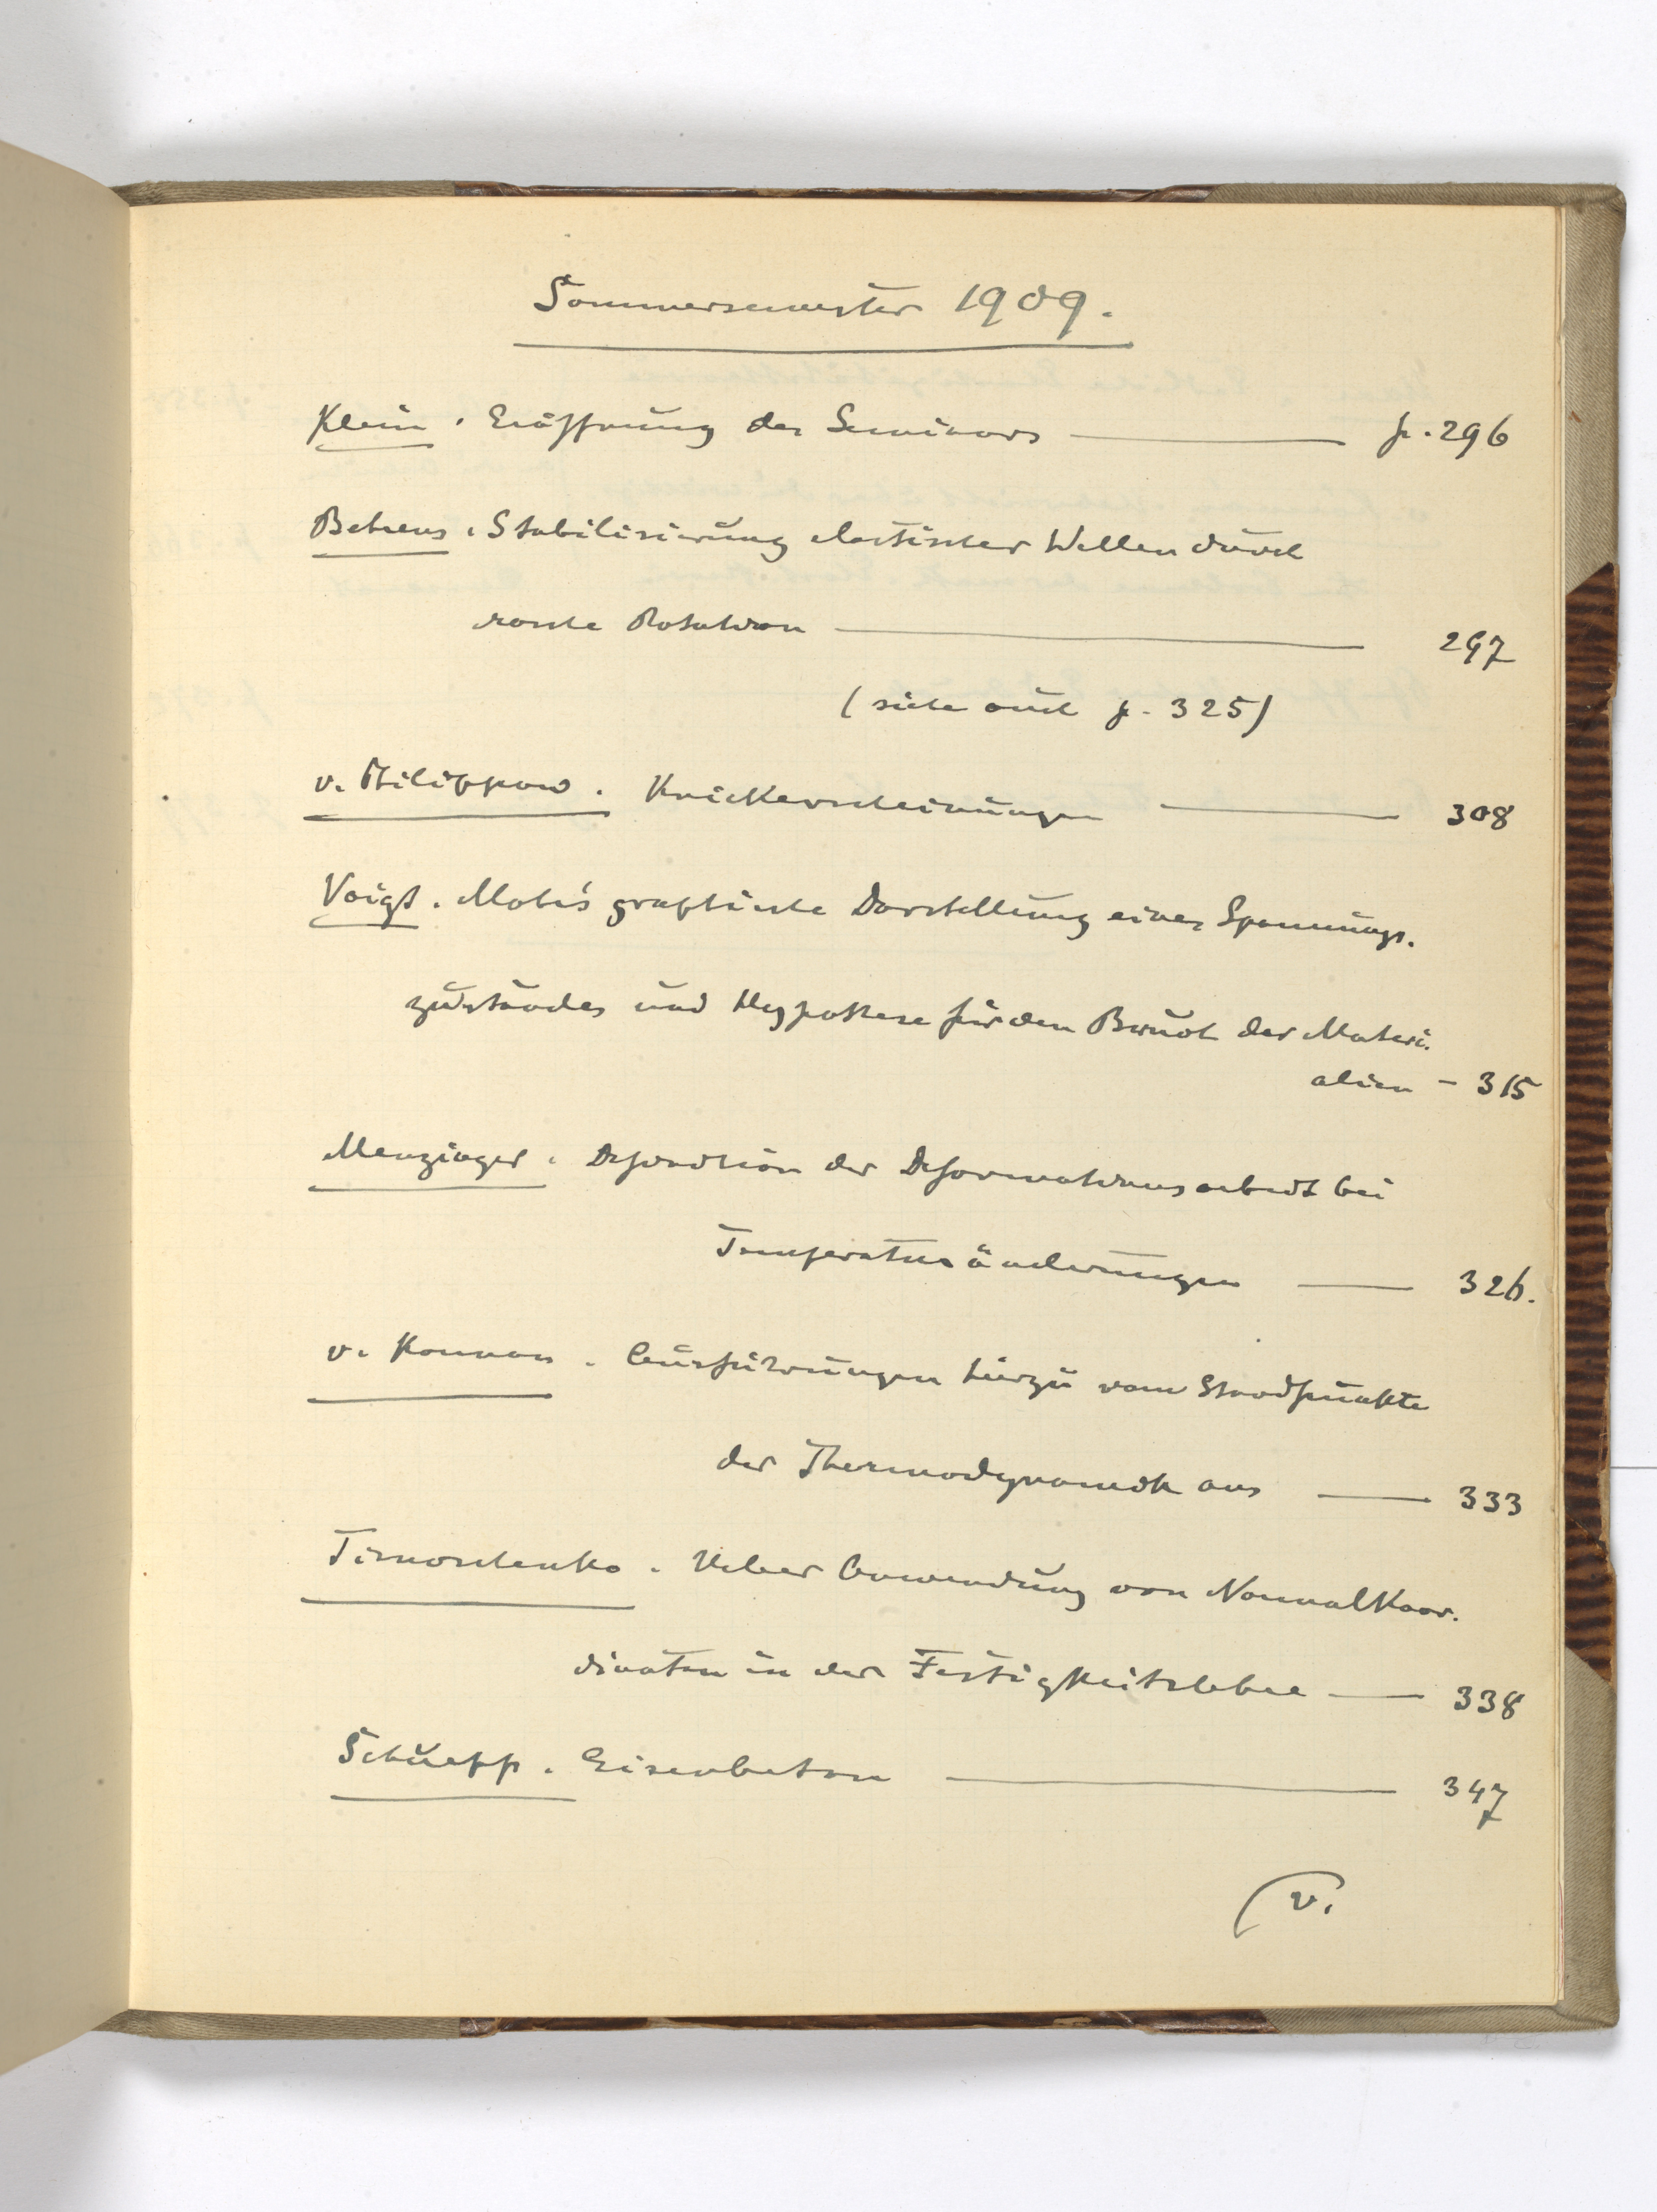 Sommersemester 1909.
Klein. Eröffnung des Seminars — p. 296
Behrens. Stabilisierung elastischer Wellen durch
rasche Rotation — 297
(siehe auch p. 325)
v. Philippow. Knickerscheinungen — 308
Voigt. Mohr's graphische Darstellung eines Spannungs-
zustandes und Hypothese für den Bruch der Materi-
alien - 315
Menzinger. Definition der Deformationsarbeit bei
Temperaturänderungen — 326.
v. Karman. Ausführungen hierzu vom Standpunkte
der Thermodynamik aus — 333
Timoschenko. Ueber Anwendung von Normalkoor-
dinaten in der Festigkeitslehre — 338
Schüepp. Eisenbeton — 347
v.